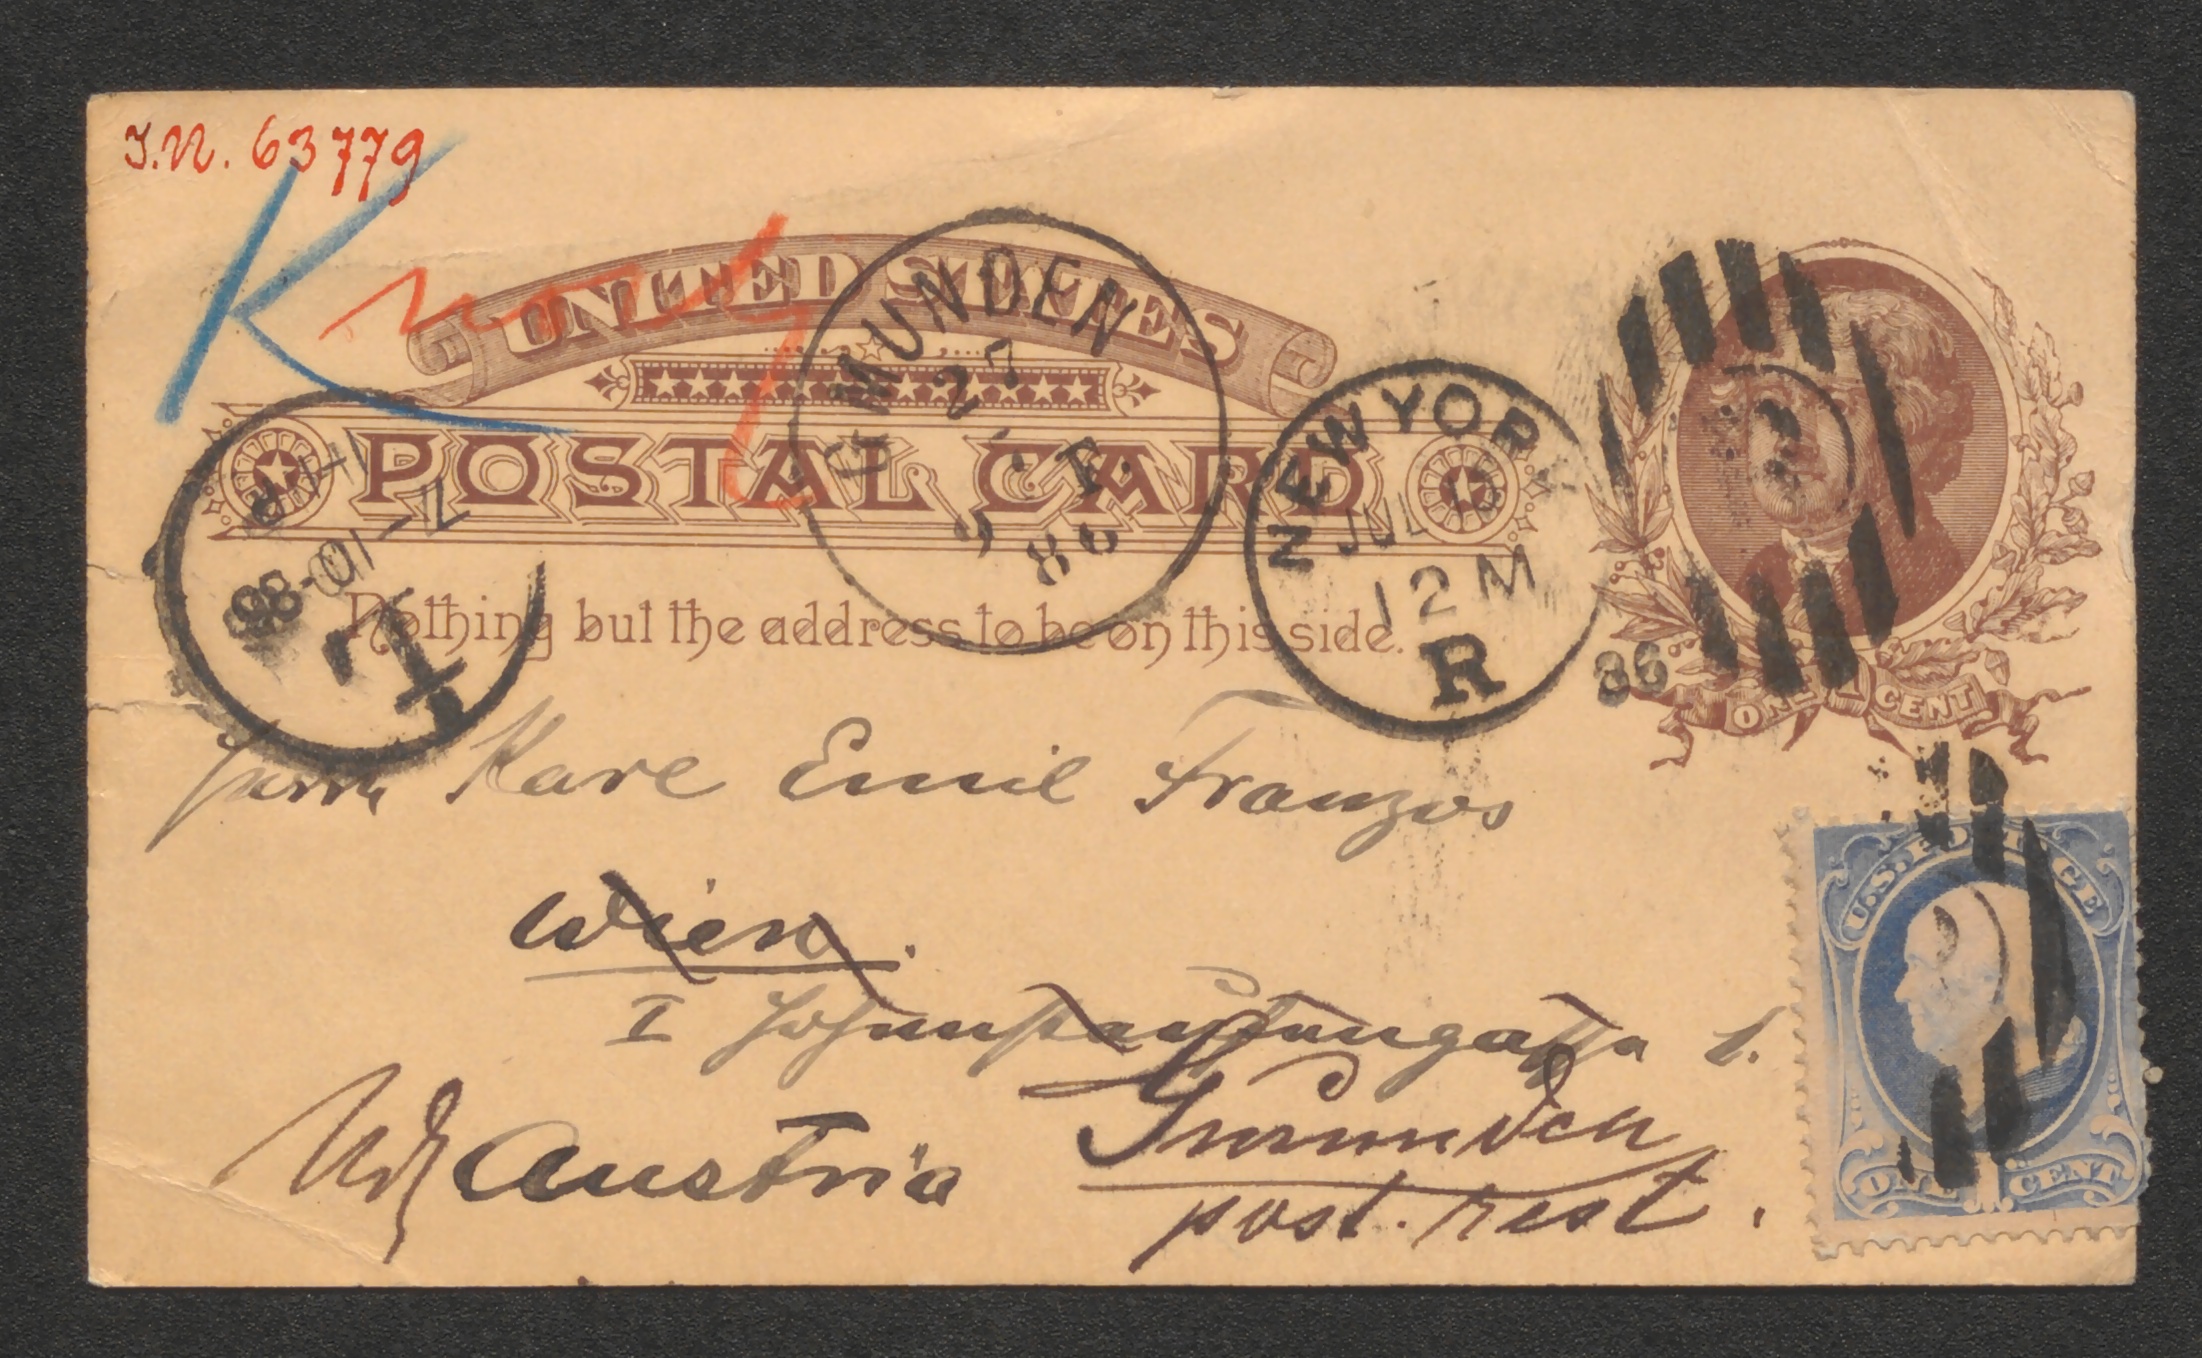 I.N. 63779
K
UNITED STATES
POSTAL CARD
Nothing but the address to be on this side.
GMUNDEN
27
7
86
NEW YORK
JUL 10
12 M
86
R
7-10-86
7
ONE 1 CENT
Herrn Karl Emil Franzos
Wien.
I Johannesgasse 1.
Austria
Gmunden
post. rest.
U.S. POSTAGE
ONE CENT